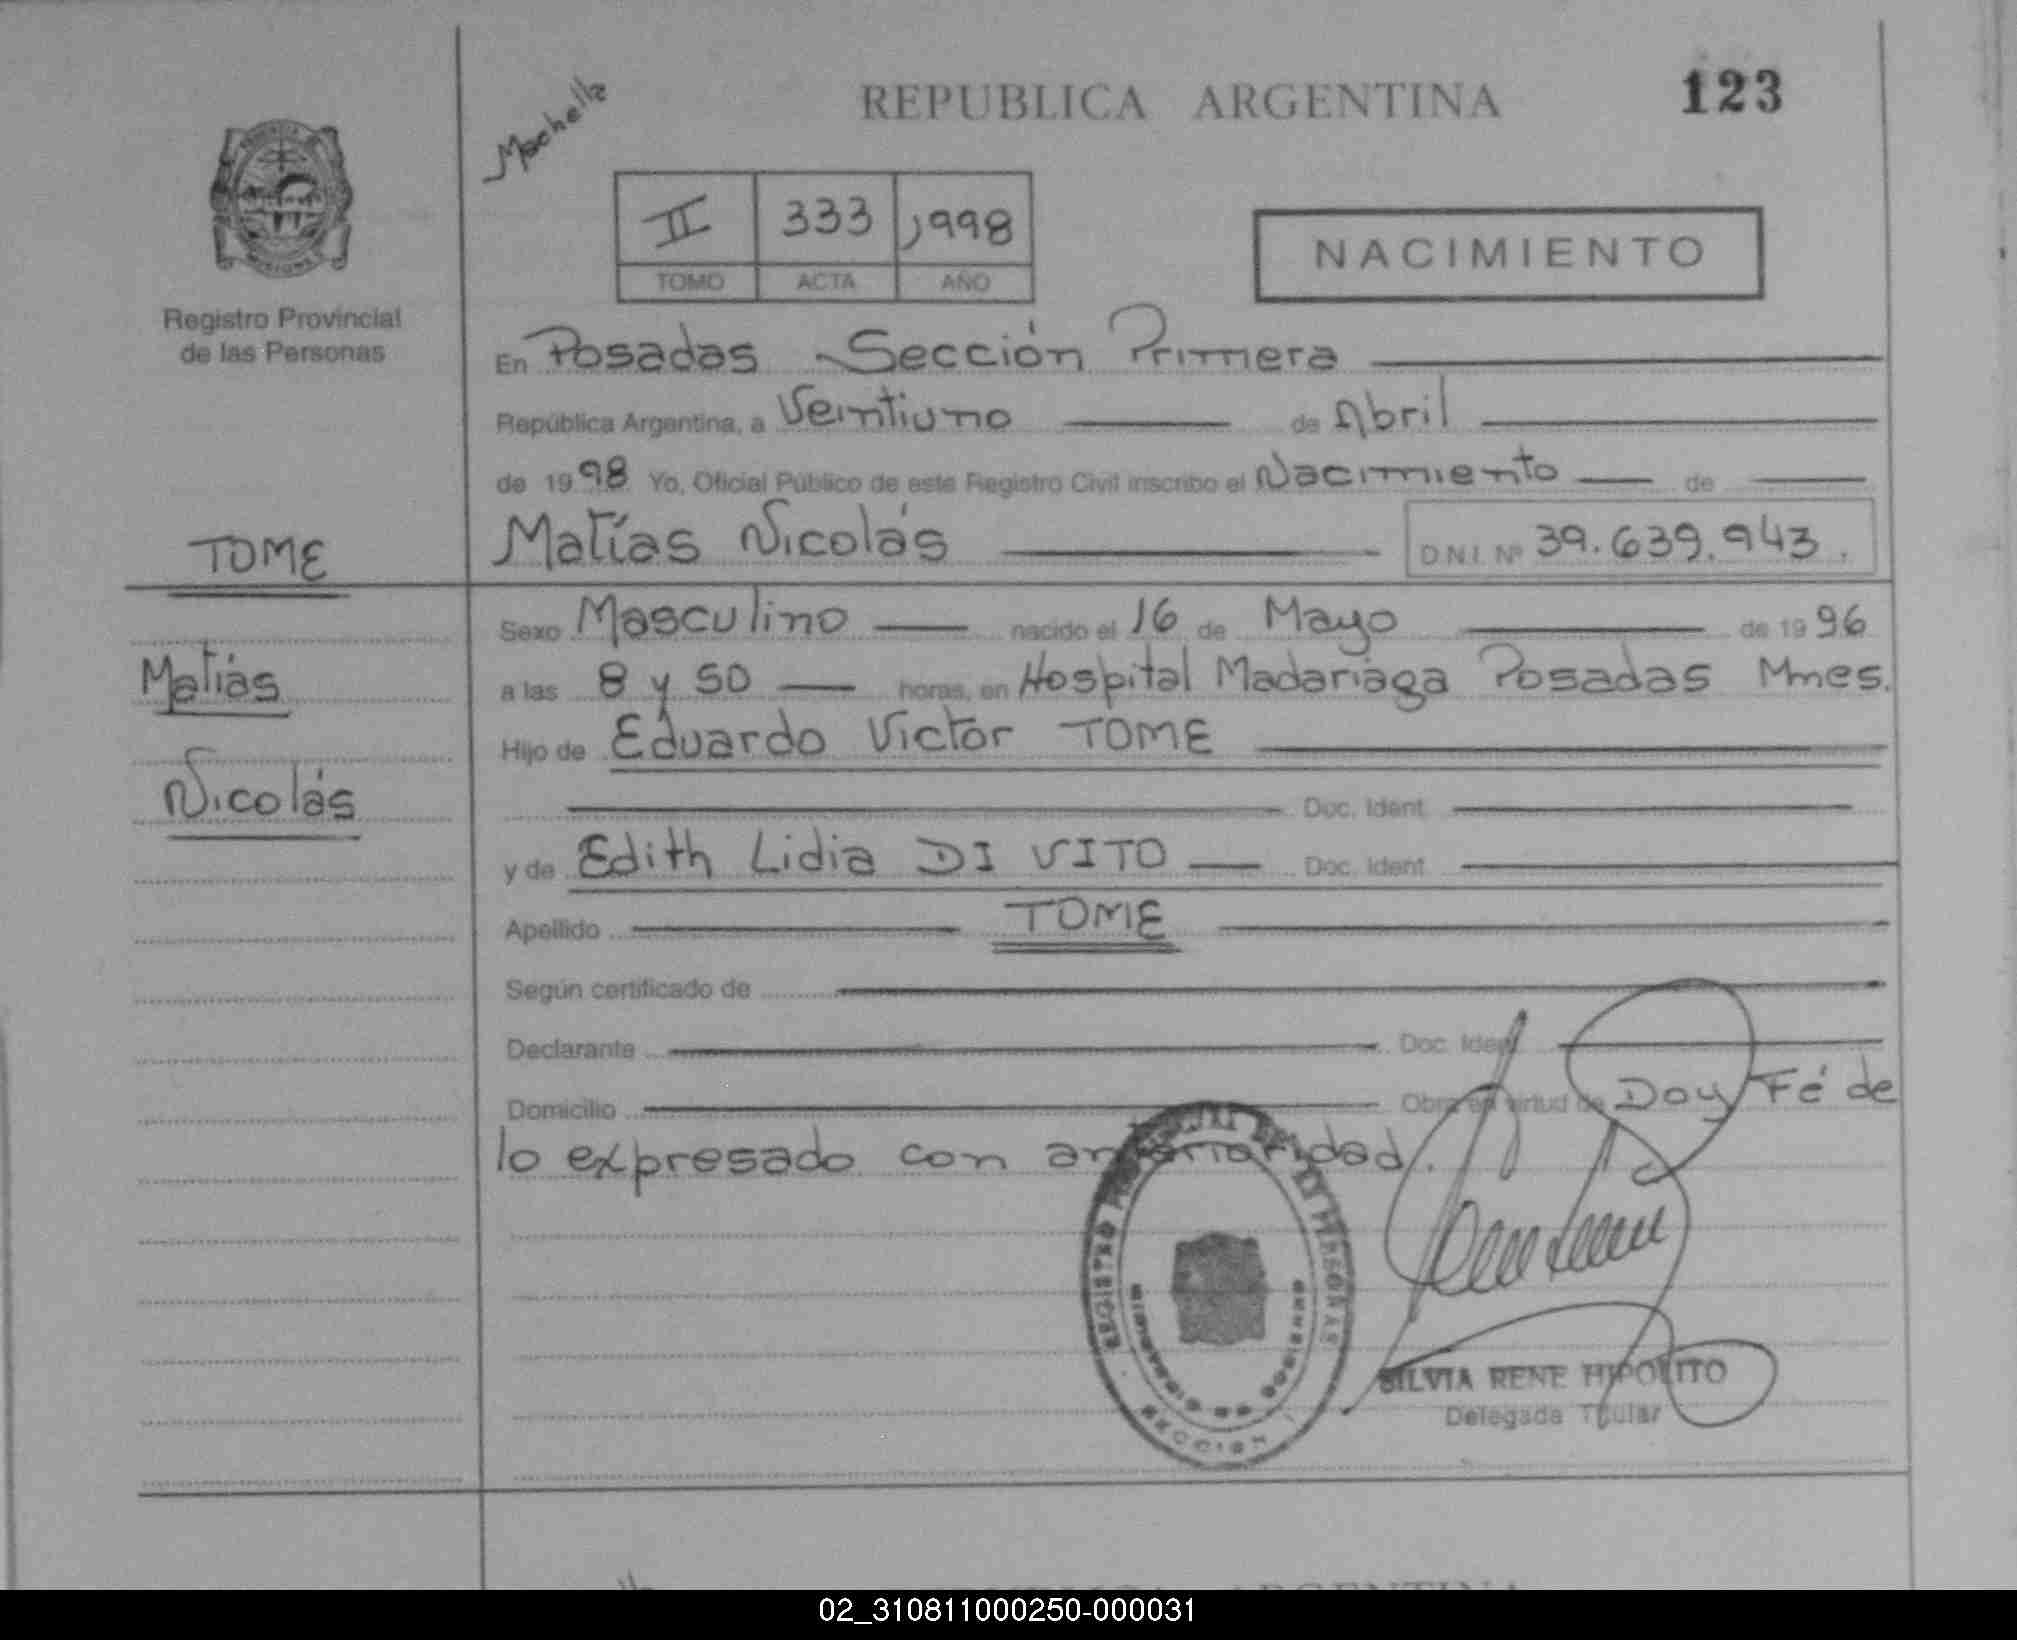 Mochella
REPUBLICA ARGENTINA
123
II 333 1998
TOMO ACTA AÑO
NACIMIENTO
MISIONES
Registro Provincial
de las Personas
En Posadas Sección Primera
República Argentina, a Veintiuno de Abril
de 1998 Yo, Oficial Público de este Registro Civil inscribo el Nacimiento de
Matías Nicolás D.N.I. Nº 39.639.943.
TOME
Sexo Masculino nacido el 16 de Mayo de 1996
Matías
a las 8 y 50 horas, en Hospital Madariaga Posadas Mnes.
Hijo de Eduardo Victor TOME
Nicolás
Doc. Ident.
y de Edith Lidia DI VITO Doc. Ident.
Apellido TOME
Según certificado de
Declarante Doc. Ident.
Domicilio Obra en virtud de Doy Fé de
lo expresado con anterioridad.
REGISTRO PROVINCIAL DE LAS PERSONAS
MINISTERIO DE GOBIERNO
SECCION
SILVIA RENE HIPOLITO
Delegada Titular
REPUBLICA ARGENTINA
02_310811000250-000031